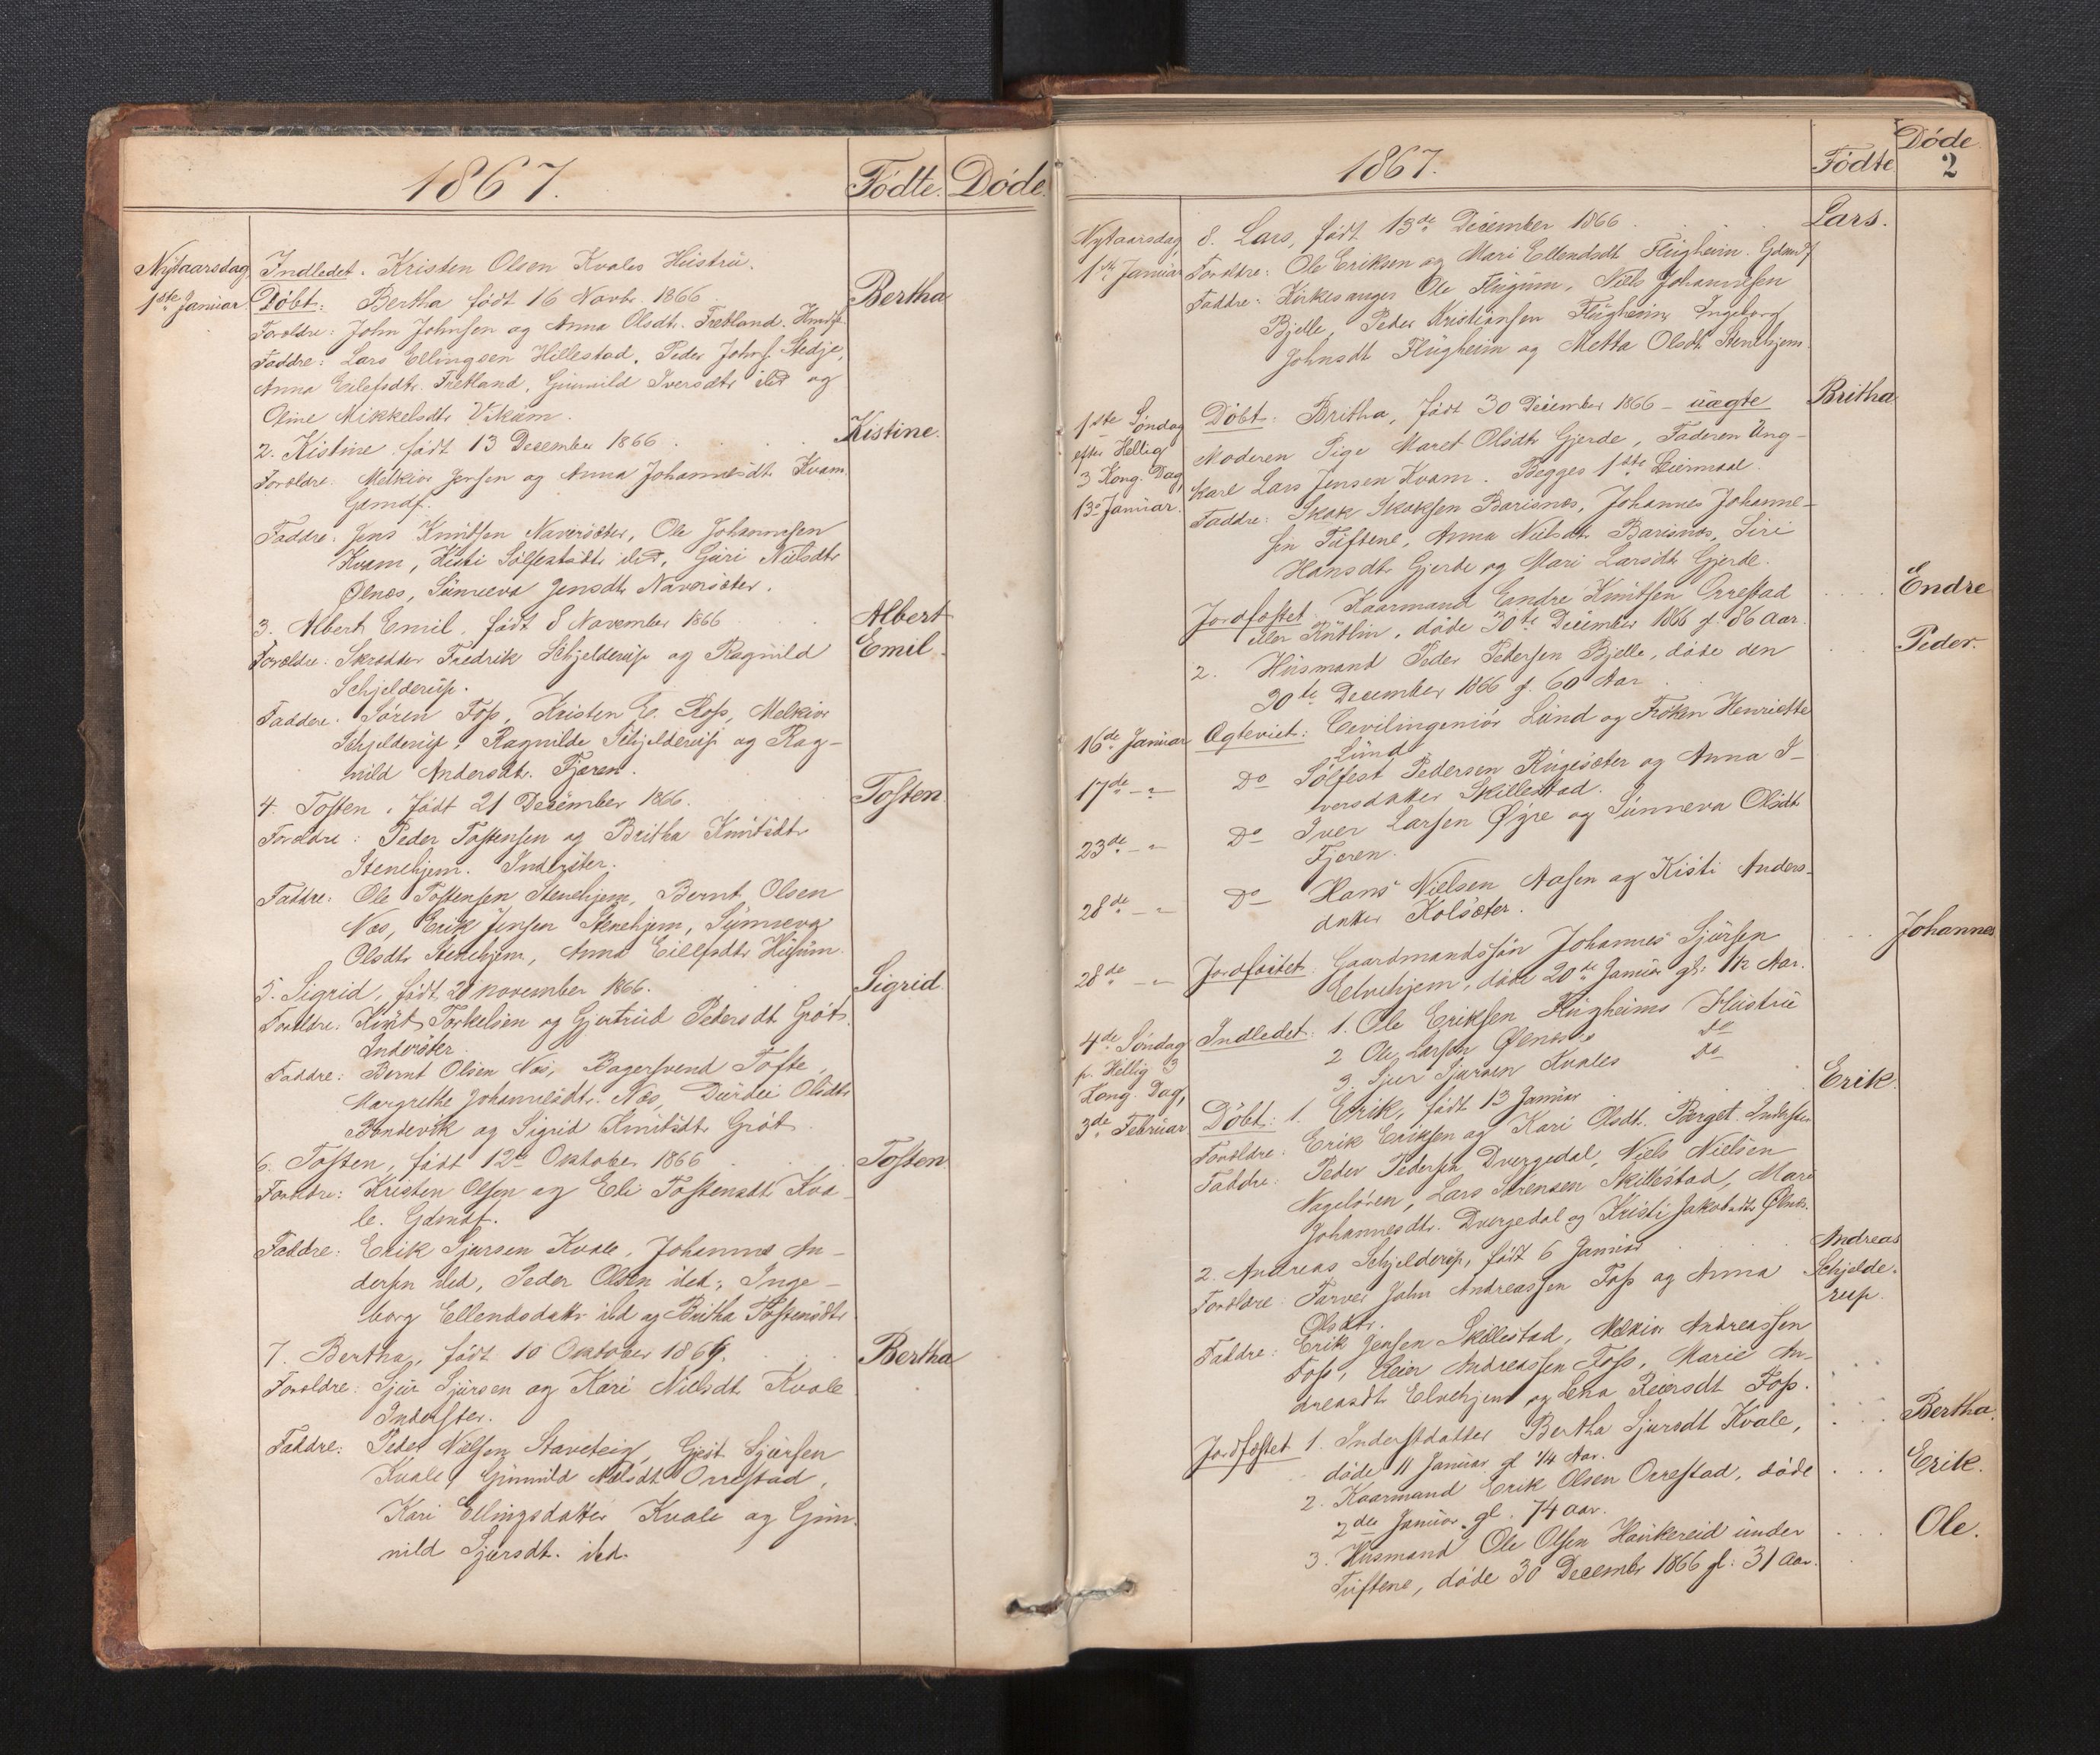 1867.
Födte.
Döde.
Nytaarsdag
1ste Januar.
Indledet. Kristen Olsen Kvales Hüstrü.
Döbt: Bertha födt 16 Novbr. 1866
Bertha
Foroldre: John Johnsen og Anna Olsdtr. Fretland. Hmdsf.
Faddre: Lars Ellingsen Hillestad, Peder Johnf. Stedje,
Anna Eilefsdtr. Fretland, Günnild Iversdtr ibd og
Oline Mikkelsdtr Vikum.
2. Kistine födt 13 December 1866
Kistine.
Foroldre. Melkior Jensen og Anna Johannesdtr Kvam
Gamdf.
Faddre. Jens Knütsen Naversæter, Ole Johannesen
Kvam, Kisti Solfestsdtr ibd, Guri Nielsdtr
Ølnes, Sünneva Jensdtr Naversæter.
3. Albert Emil, födt 8 November 1866
Albert
Emil.
Foroldre: Skrædder Fredrik Schjelderüp og Ragnild
Schjelderüp.
Faddere: Sören Foss, Kristen E. Foss, Melkior
Schjelderüp, Ragnilde Schjelderüp og Rag-
nild Andersdtr. Fjæren.
4. Tosten, födt 21 December 1866.
Tosten
Foroldre: Peder Tostensen og Britha Knütsdtr
Stenehjem. Inderster.
Faddre: Ole Tostensen Stenehjem, Bernt Olsen
Næs, Erik Jensen Stenehjem, Sünneva
Olsdtr Stenehjem, Anna Eilefsdtr Hüsüm.
5. Sigrid, födt 20 november 1866.
Sigrid
Foroldre: Knüt Torkelsen og Gjertrüd Pedersdt Gröt
Inderster
Faddre: Bernt Olsen Næs, Bagersvend Tofte,
Margrethe Johannesdtr. Næs, Dürdei Olsdtr
Bondevik og Sigrid Knütsdtr Gröt.
6. Tosten, födt 12te Oktober 1866
Tosten
Foroldre: Kristen Olsen og Eli Tostensdt Kva-
le. Gdmdf.
Faddre: Erik Sjursen Kvale, Johannes An-
dersen ibd, Peder Olsen ibd., Inge-
borg Ellendsdatr ibd og Britha Tostensdtr
7. Bertha, födt 10 Oktober 1866.
Bertha
Foroldre: Sjür Sjürsen og Kari Nielsdt Kvale
Inderster.
Faddre: Peder Nilsen Staveteig, Gjest Sjürsen
Kvale, Günnild Nilsdt Orrestad,
Kari Ellingsdatter Kvale og Gün-
nild Sjürsdt. ibd.
1867.
Födte
Döde.
2
Nytaarsdag
1ste Januar
8. Lars, födt 13de December 1866
Lars.
Foroldre: Ole Eriksen og Mari Ellendsdt Flugheim. Gdmdf
Faddre: Kirkesanger Ole Flugüm, Niels Johannesen
Bjelle, Peder Kristiansen Flugheim, Ingeborg
Johnsdt Flügheim og Metta Olsdt Stenehjem.
1ste Söndag
efter Hellig
3 Kong. Dag,
13de Januar.
Döbt: Britha, födt 30 December 1866 - uægte
Britha
Moderen Pige Maret Olsdtr Gjerde, Faderen Ung-
karl Lars Jensen Kvam. Begges 1ste Leiermaal.
Faddre: Skak Skaksen Barisnes, Johannes Johanne-
sen Tüftene, Anna Nielsdtr Barisnes, Siri
Hansdtr Gjerde og Mari Larsdtr Gjerde.
Jordfæstet. Kaarmand Endre Knütsen Orrestad
Endre
eller Rütlin, döde 30te December 1866 g. 86 Aar.
2. Hüsmand Peder Pedersen Bjelle, döde den
Peder.
30te December 1866 g. 60 Aar
16de Januar
Ægteviet: Civilingeniör Lund og Fröken Henriette
Lund
17de - "
Do Solfest Pedersen Rügesæter og Anna I-
versdatter Skillestad.
23de - "
Do Iver Larsen Øyre og Sünneva Olsdt
Fjæren.
28de - "
Do Hans Nielsen Aasen og Kisti Anders-
datter Kolsæter.
28de - "
Jordfæstet Gaardmandssön Johannes Sjürsen
Johannes
Elvehjem, döde 20de Januar gl: 1½ Aar.
4de Söndag
p. Hellig 3
Kong. Dag,
3de Februar
Indledet: 1. Ole Eriksen Flugheims Hüstrü
2 Ole Larsen Ølnes's do
3. Sjur Sjursen Kvales do
Döbt: 1. Erik, födt 13 Januar
Erik.
Foroldre: Erik Eriksen og Kari Olsdt. Berget. Inderster
Faddre: Peder Pedersen Dvergedal, Niels Nielsen
Nagelören, Lars Sörensen Skillestad, Mari
Johannesdtr. Dvergedal og Kristi Jakobsdtr Ølnes.
2. Andreas Schjelderüp, födt 6 Januar
Andreas
Schjelde-
rup.
Foroldre: Farver John Andreassen Foss og Anna
Olsdtr.
Faddre: Erik Jensen Skillestad, Melkior Andreassen
Foss, Reier Andreassen Foss, Marie An-
dreasdtr Elvehjem og Lena Reiersdt Foss.
Jordfæstet 1. Inderstdatter Bertha Sjursdt Kvale,
Bertha.
döde 11 Januar gl ¼ Aar.
2. Kaarmand Erik Olsen Orrestad, döde
Erik.
2den Januar gl. 74 aar.
3. Husmand Ole Olsen Haukereid under
Ole.
Tüftene, döde 30 December 1866 gl. 31 Aar.